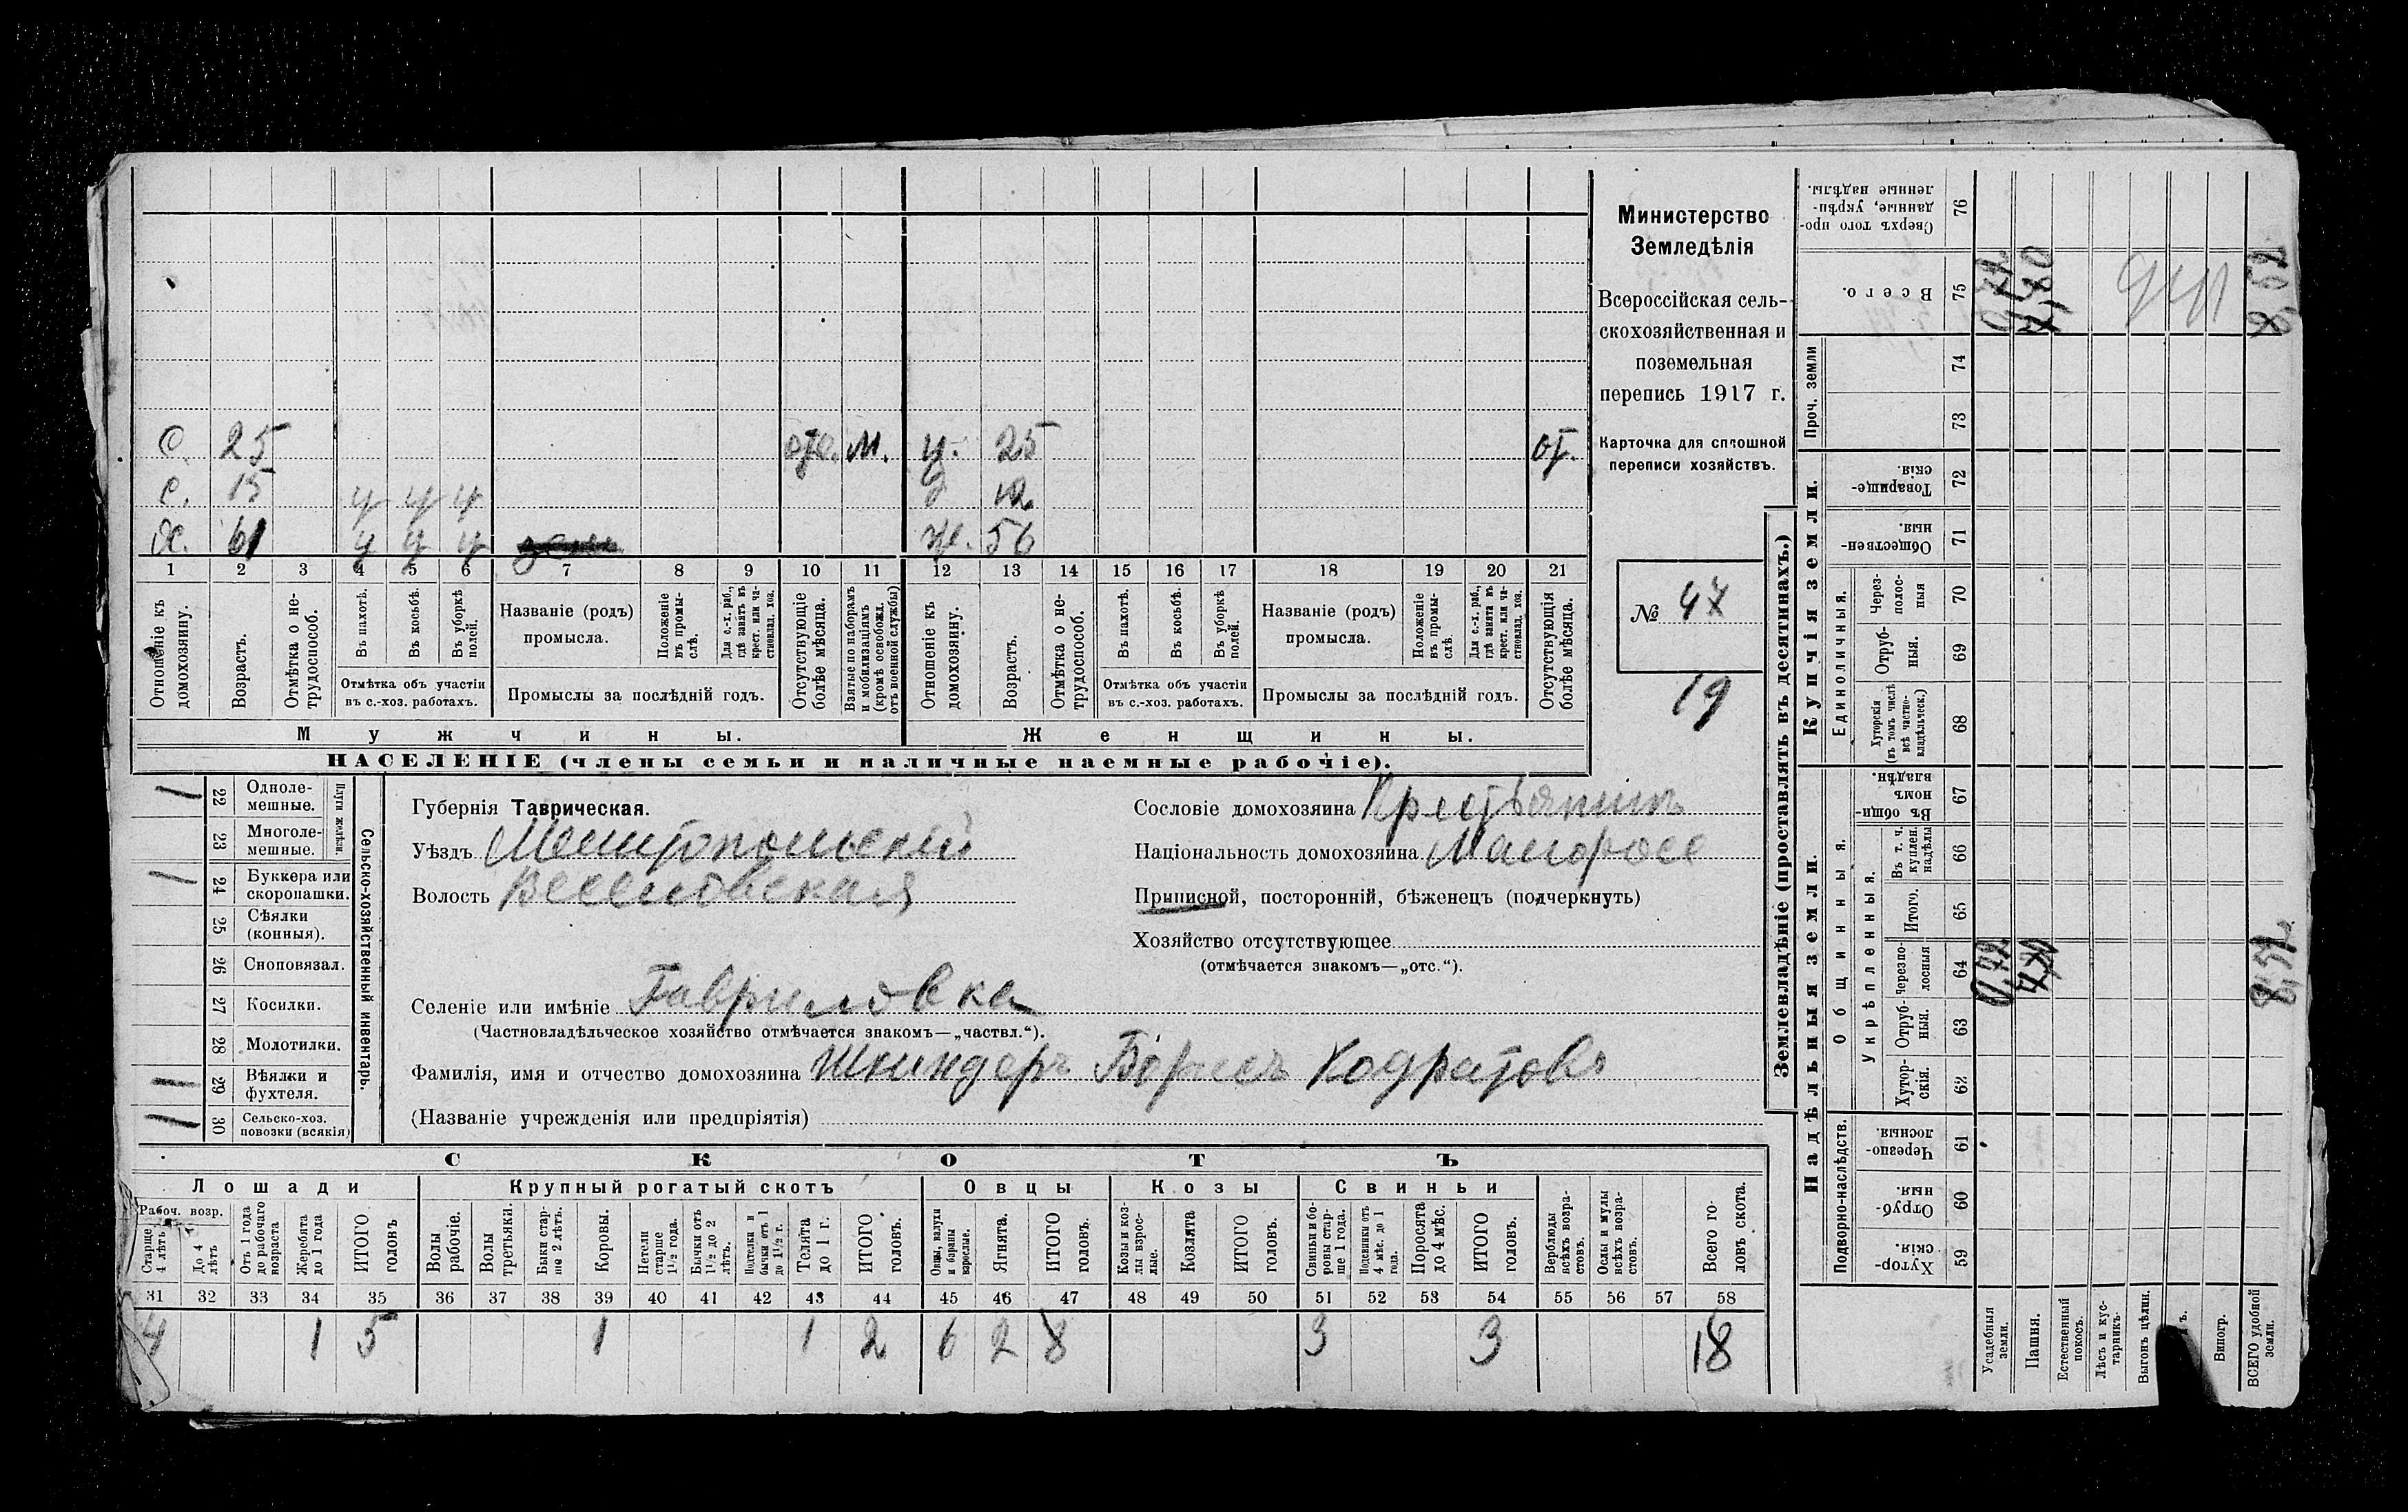 Министерство
Земледѣлія
Всероссійская сель-
скохозяйственная и
поземельная
перепись 1917 г.
Карточка для сплошной
переписи хозяйствъ.
№ 47
19
с. 25 отс. М. д. 25 от.
с. 15 у у у д 12
х. 61 у у у ж. 56
1 2 3 4 5 6 7 8 9 10 11 12 13 14 15 16 17 18 19 20 21
Отношеніе къ домохозяину.
Возрастъ.
Отмѣтка о не-трудоспособ.
Въ пахотѣ.
Въ косьбѣ.
Въ уборкѣ полей.
Отмѣтка объ участіи
въ с.-хоз. работахъ.
Названіе (родъ)
промысла.
Положеніе въ промы-слѣ.
Для с.-х. раб., гдѣ занятъ въ крест. или ча-стновлад. хоз.
Промыслы за послѣдній годъ.
Отсутствующіе болѣе мѣсяца.
Взятые по наборамъ и мобилизаціямъ (кромѣ освобожд. отъ военной службы)
Отношеніе къ домохозяину.
Возрастъ.
Отмѣтка о не-трудоспособ.
Въ пахотѣ.
Въ косьбѣ.
Въ уборкѣ полей.
Отмѣтка объ участіи
въ с.-хоз. работахъ.
Названіе (родъ)
промысла.
Положеніе въ промы-слѣ.
Для с.-х. раб., гдѣ занята въ крест. или ча-стновлад. хоз.
Промыслы за послѣдній годъ.
Отсутствующія болѣе мѣсяца.
Мужчины. Женщины.
НАСЕЛЕНІЕ (члены семьи и наличные наемные рабочіе).
22 Одноле-мешные.
23 Многоле-мешные.
Плуги желѣзн.
24 Буккера или скоропашки.
25 Сѣялки (конныя).
26 Сноповязал.
27 Косилки.
28 Молотилки.
29 Вѣялки и фухтеля.
30 Сельско-хоз. повозки (всякія)
Сельско-хозяйственный инвентарь.
Губернія Таврическая.
Уѣздъ Мелитопольскій
Волость Веселовская
Сословіе домохозяина Крестьянинъ
Національность домохозяина Малоросс
Приписной, посторонній, бѣженецъ (подчеркнуть)
Хозяйство отсутствующее
(отмѣчается знакомъ—„отс.“).
Селеніе или имѣніе Гавриловка
(Частновладѣльческое хозяйство отмѣчается знакомъ—„частвл.“).
Фамилія, имя и отчество домохозяина Шкиндеръ Борисъ Кодратовъ
(Названіе учрежденія или предпріятія)
СКОТЪ
Лошади Крупный рогатый скотъ Овцы Козы Свиньи
Рабоч. возр.
Старше 4 лѣтъ
До 4 лѣтъ
Отъ 1 года до рабочаго возраста
Жеребята до 1 года
ИТОГО головъ
Волы рабочіе.
Волы третьяки.
Быки стар-ше 2 лѣтъ.
Коровы.
Нетели старше 1½ года.
Бычки отъ 1½ до 2 лѣтъ.
Подтелки и бычки отъ 1 до 1½ г.
Телята до 1 г.
ИТОГО головъ.
Овцы, валухи и бараны взрослые.
Ягнята.
ИТОГО головъ.
Козы и коз-лы взрос-лые.
Козлята
ИТОГО головъ.
Свиньи и бо-ровы стар-ше 1 года.
Подсвинки отъ 4 мѣс. до 1 года.
Поросята до 4 мѣс.
ИТОГО головъ.
Верблюды всѣхъ возра-стовъ.
Ослы и мулы всѣхъ возра-стовъ.
Всего го-ловъ скота.
31 32 33 34 35 36 37 38 39 40 41 42 43 44 45 46 47 48 49 50 51 52 53 54 55 56 57 58
4 1 5 1 1 2 6 2 8 3 3 18
Землевладѣніе (проставлять въ десятинахъ.)
Надѣльныя земли. Купчія земли. Проч. земли
Подворно-наслѣдств.
Общинныя.
Укрѣпленныя.
Единоличныя.
Хутор-скія. 59
Отруб-ныя. 60
Черезпо-лосныя. 61
Хутор-скія. 62
Отруб-ныя. 63
Черезпо-лосныя 64
Итого. 65
Въ т. ч. куплен. надѣлы 66
Въ общин-номъ владѣн. 67
Хуторскія (въ томъ числѣ всѣ частно-владѣльческ.) 68
Отруб-ныя. 69
Через-полос-ныя 70
Обществен-ныя. 71
Товарище-скія. 72
73
74
Всего. 75
Сверхъ того про-данные, укрѣп-ленные надѣлы. 76
Усадебныя земли.
Пашня.
Естественный покосъ.
Лѣсъ и кус-тарникъ.
Выгонъ цѣлин.
Виногр.
ВСЕГО удобной земли.
8,52
8,52